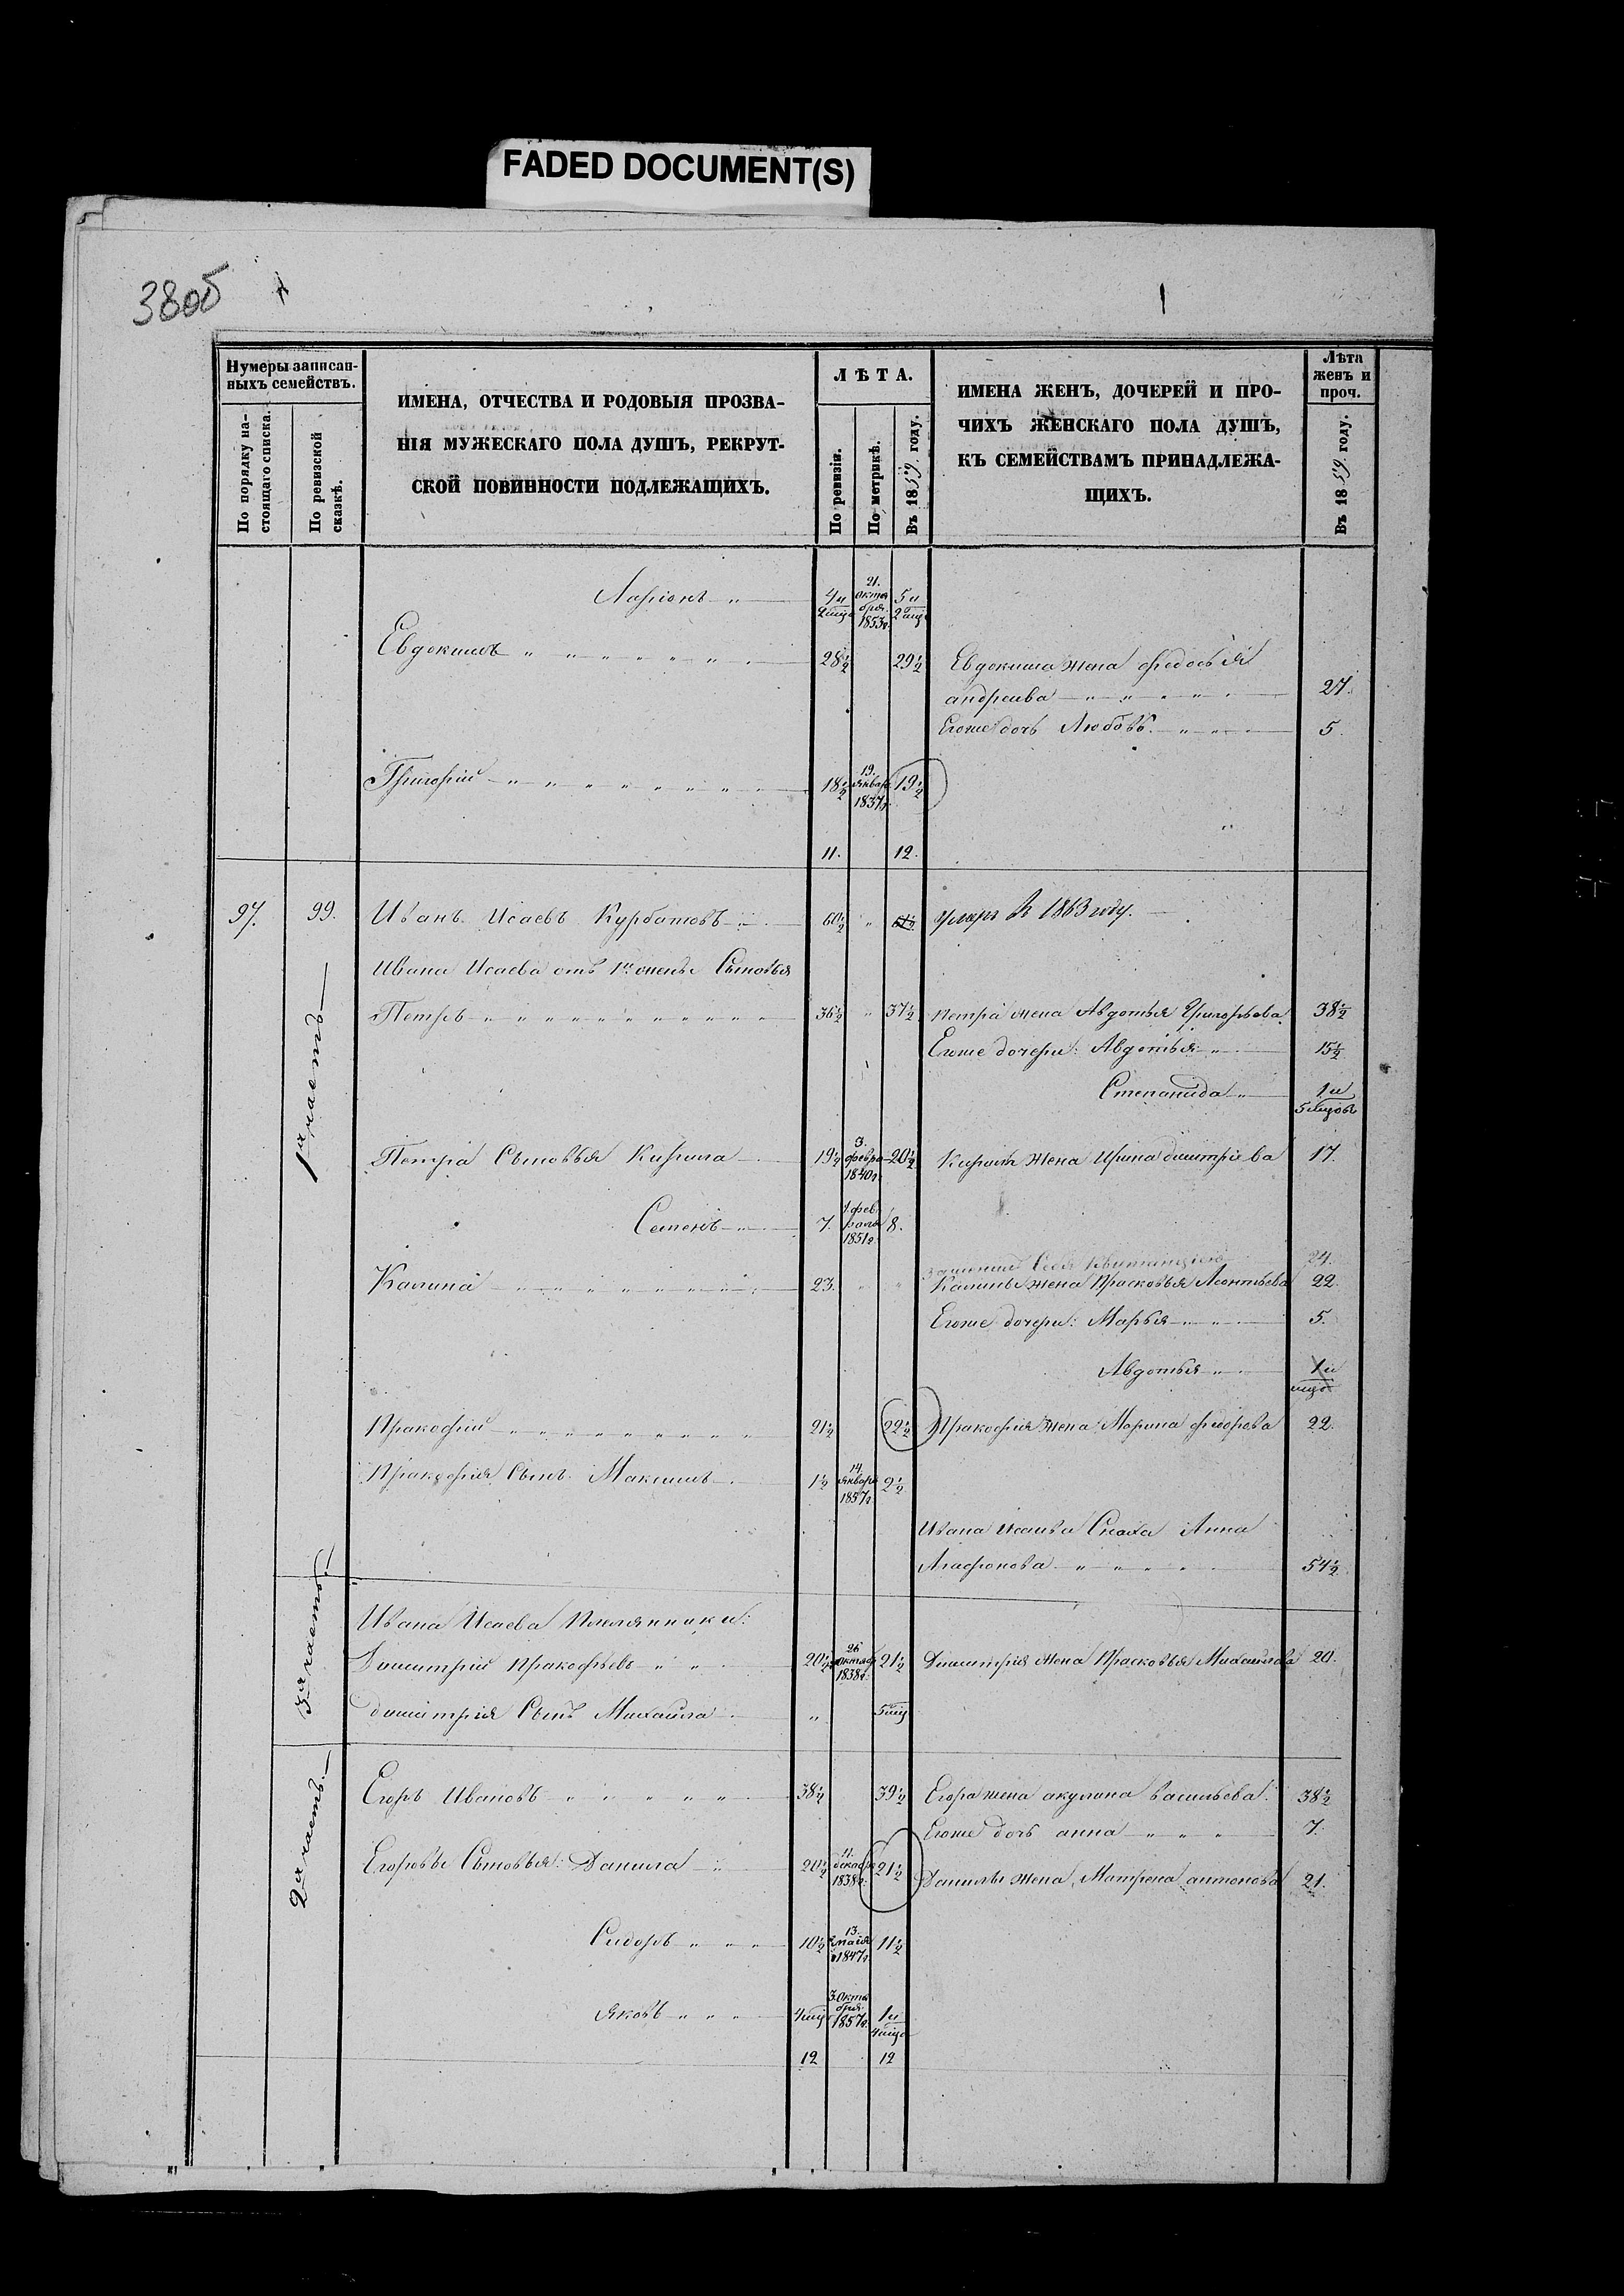 FADED DOCUMENT(S)
38об
Нумеры записан-
ныхъ семействъ.
По порядку на-
стоящаго списка.
По ревизской
сказкѣ.
ИМЕНА, ОТЧЕСТВА И РОДОВЫЯ ПРОЗВА-
НІЯ МУЖЕСКАГО ПОЛА ДУШЪ, РЕКРУТ-
СКОЙ ПОВИННОСТИ ПОДЛЕЖАЩИХЪ.
ЛѢТА.
По ревизіи.
По метрикѣ.
Въ 1859 году.
ИМЕНА ЖЕНЪ, ДОЧЕРЕЙ И ПРО-
ЧИХЪ ЖЕНСКАГО ПОЛА ДУШЪ,
КЪ СЕМЕЙСТВАМЪ ПРИНАДЛЕЖА-
ЩИХЪ.
Лѣта
женъ и
проч.
Въ 1859 году.
Ларіонъ 4 и 2 мца 21. октября. 1853г. 5 и 2 мца
Евдокимъ 28½ 29½ Евдокима жена Федосья
андреева 27.
Егоже дочь Любовь. 5.
Григорій 18½ 19. Января 1837г. 19½
11. 12.
97. 99. Иванъ Исаевъ Курбатовъ 60½ 61½ Умеръ въ 1863 году.
1я часть
Ивана Исаева отъ 1й жены Сыновья
Петръ 36½ 37½ Петра жена Авдотья Григорьева 38½
Егоже дочери: Авдотья 15½
Степанида 1 и 5 мцовъ
Петра Сыновья Кирила 19½ 3. февра 1840г. 20½ Кирилы жена Ирина дмитріева 17.
Семенъ 7. 1 февраля 1851г. 8.
Заменилъ Себя Квитанціею 24.
Калина 23. Калины жена Прасковья Леонтьева 22
Егоже дочери: Марья 5.
Авдотья 1 и мцо
Пракофій 21½ 22½ Пракофія жена Марина федорова 22.
Пракофія Сынъ Максимъ 1½ 14. Января 1857г. 2½
Ивана Исаева Сноха Анна
Агафонова 54½
3я часть
Ивана Исаева Племянники:
Димитрій Пракофьевъ 20½ 26 октября 1838г. 21½ Димитрія жена Прасковья Михайлова 20.
димитрія Сынъ Михайла 5 мц
2я часть.
Егоръ Ивановъ 38½ 39½ Егора жена акулина васильева. 38½
Егоже дочь анна 7.
Егоровы Сыновья: Данила 20½ 11. декабря 1838г. 21½ Данилы жена Матрена антонова 21.
Сидоръ 10½ 13. маія 1847г. 11½
Яковъ 4 мц 3. Октября 1857г. 1 и 4 мца
12 12